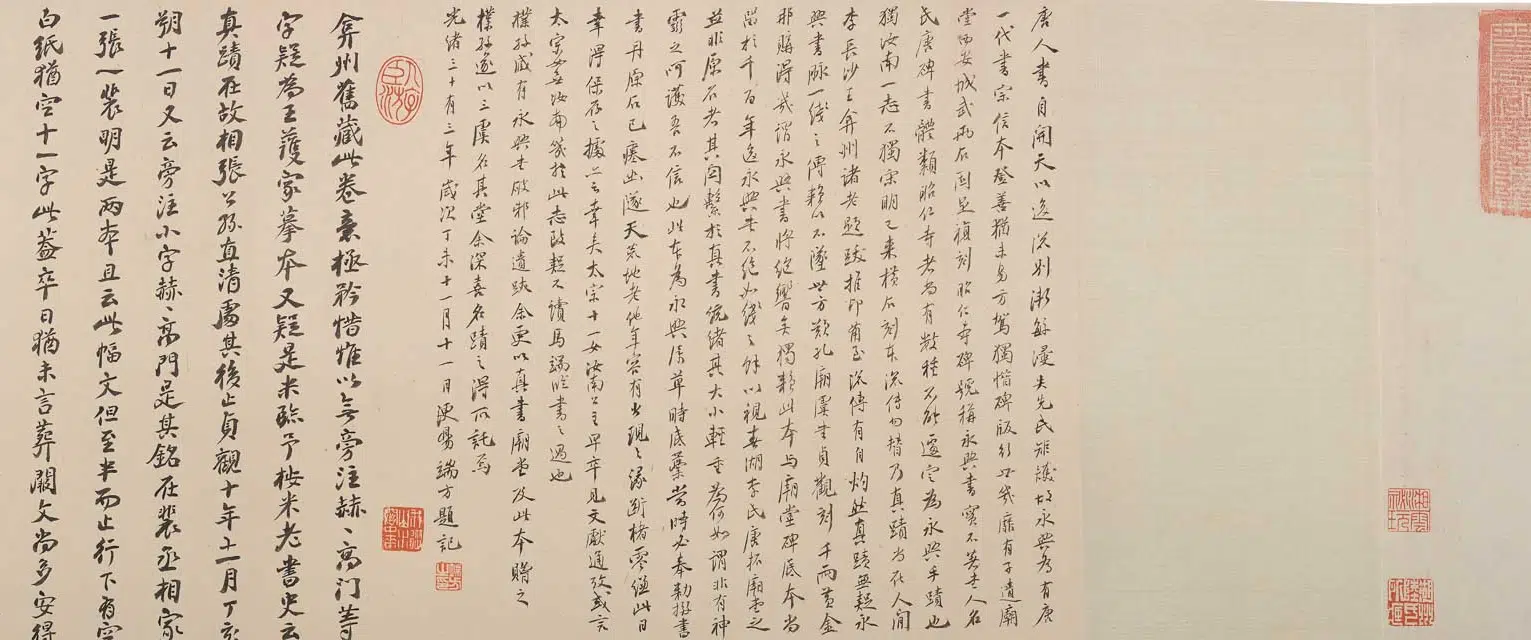 唐人書自開天以漸漫失先民矩矱故永興為有唐
一代書宗信本登善猶未克方駕獨惜碑版行世幾靡有孑遺廟
堂西安城武兩石固是複刻昭仁寺碑號稱永興書實不著書人名
氏唐碑書體類昭仁寺者尚有數種不能遽定為永興手蹟也
獨汝南一志不獨宋明已來橫石刻本流傳勿替乃真蹟尚在人間
李長沙王弇州諸老題跋推印有至流傳有自灼然真蹟無疑永
興書脉一綫之傳賴以不墜世方歎孔廟虞書貞觀刻千兩黃金
那購得我謂永興書將絕響矣獨賴此本与廟堂碑底本尚
留於千百年後永興書不絕如綫之餘以視春湖李氏唐拓廟堂之
並非原石者其關繫於真書統緒其大小輕重為何如謂非有神
靈之呵護吾不信也此本為永興原草時底藁當時必奉勅撰書
書丹原石已瘞幽隧天荒地老他年容有出現之緣斷楮零縑此日
幸得保存之據亦云幸矣太宗十一女汝南公主早卒見文獻通攷或言
太宗女無汝南幾於此志致疑不讀馬端臨書之過也
樸孫咸有永興書破邪論遺跡余更以真書廟堂及此本贈之
樸孫遂以三虞名其堂余深喜名蹟之得所託焉
光緒三十有三年歲次丁未十一月十一日浭陽端方題記
弇州舊藏此卷意極矜惜惟以無旁注赫、高門等
字疑為王護家摹本又疑是米臨予桉米老書史云
真蹟在故相張公孫直清處其後止貞觀十年十一月丁亥
朔十一日又云旁注小字赫、高門是其銘在裴丞相家
一張一裴明是兩本且云此幅文但至半而止行下有空
白紙猶空十一字此蓋卒日猶未言葬闕文尚多安得